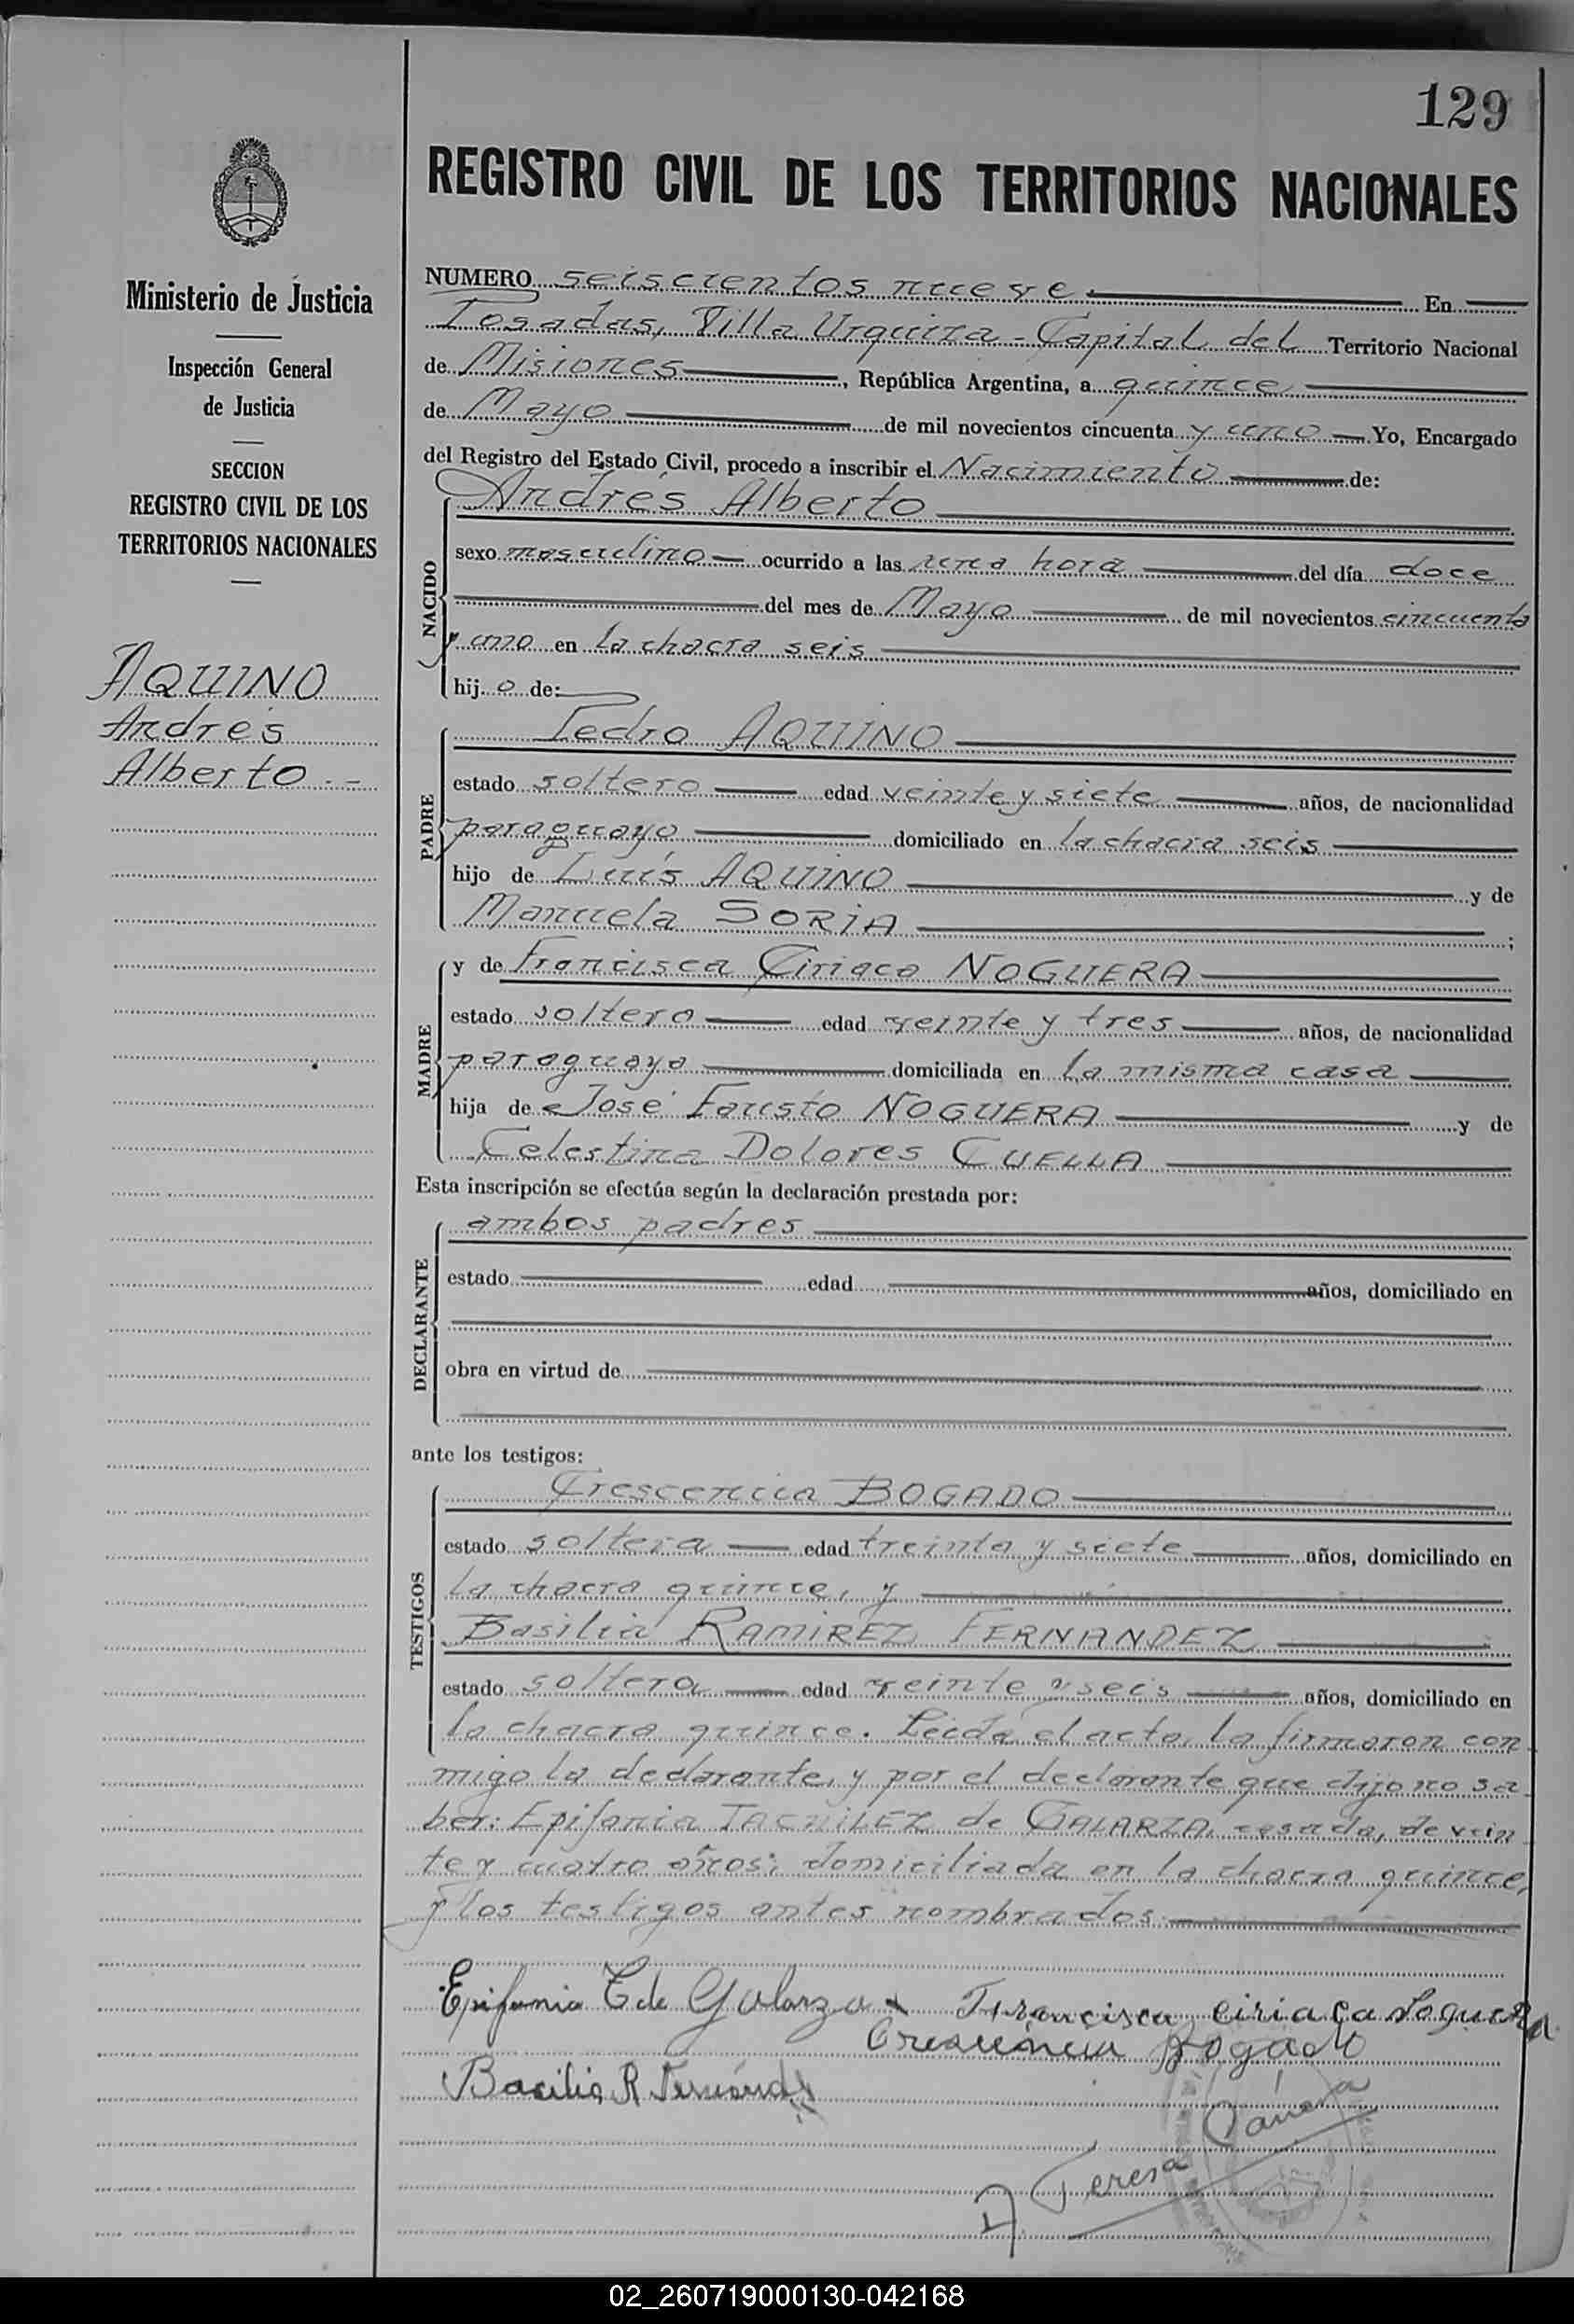 129
REGISTRO CIVIL DE LOS TERRITORIOS NACIONALES
Ministerio de Justicia
Inspección General
de Justicia
SECCION
REGISTRO CIVIL DE LOS
TERRITORIOS NACIONALES
AQUINO
Andrés
Alberto.-
NUMERO seiscientos nueve. En
Posadas, Villa Urquiza - Capital del Territorio Nacional
de Misiones, República Argentina, a quince
de Mayo de mil novecientos cincuenta y uno Yo, Encargado
del Registro del Estado Civil, procedo a inscribir el Nacimiento de:
Andrés Alberto
NACIDO
sexo masculino ocurrido a las una hora del día doce
del mes de Mayo de mil novecientos cincuenta
y uno en la chacra seis
hij o de:
Pedro AQUINO
PADRE
estado soltero edad veinte y siete años, de nacionalidad
paraguayo domiciliado en la chacra seis
hijo de Luis AQUINO y de
Manuela SORIA ;
MADRE
y de Francisca Ciriaca NOGUERA
estado soltera edad veinte y tres años, de nacionalidad
paraguaya domiciliada en la misma casa
hija de José Fausto NOGUERA y de
Celestina Dolores CUELLA
Esta inscripción se efectúa según la declaración prestada por:
DECLARANTE
ambos padres
estado edad años, domiciliado en
obra en virtud de
ante los testigos:
TESTIGOS
Crescencia BOGADO
estado soltera edad treinta y siete años, domiciliado en
la chacra quince, y
Basilia RAMIREZ FERNANDEZ
estado soltera edad veinte y seis años, domiciliado en
la chacra quince. Leída el acta, la firmaron con-
migo la declarante, y por el declarante que dijo no sa-
ber: Epifania de GALARZA, casada, de vein-
te y cuatro años; domiciliada en la chacra quince,
y los testigos antes nombrados.
Epifania T de Galarza Francisca ciriaca Noguera
Crescencia Bogado
Basilia R Fernández
A. Teresa
02_260719000130-042168